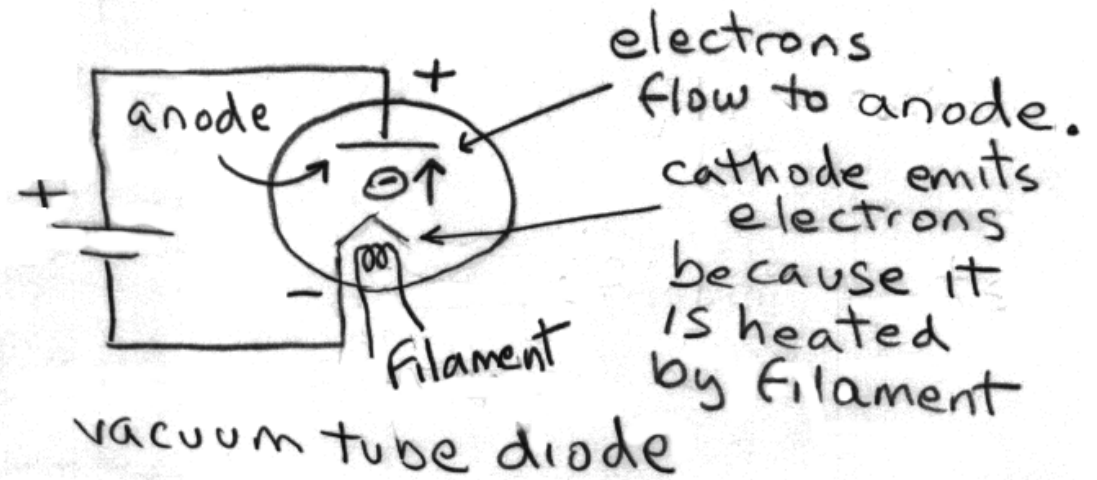 electrons
flow to anode.
+
anode
cathode emits
electrons
+
because it
-
is heated
filament
by filament
vacuum tube diode